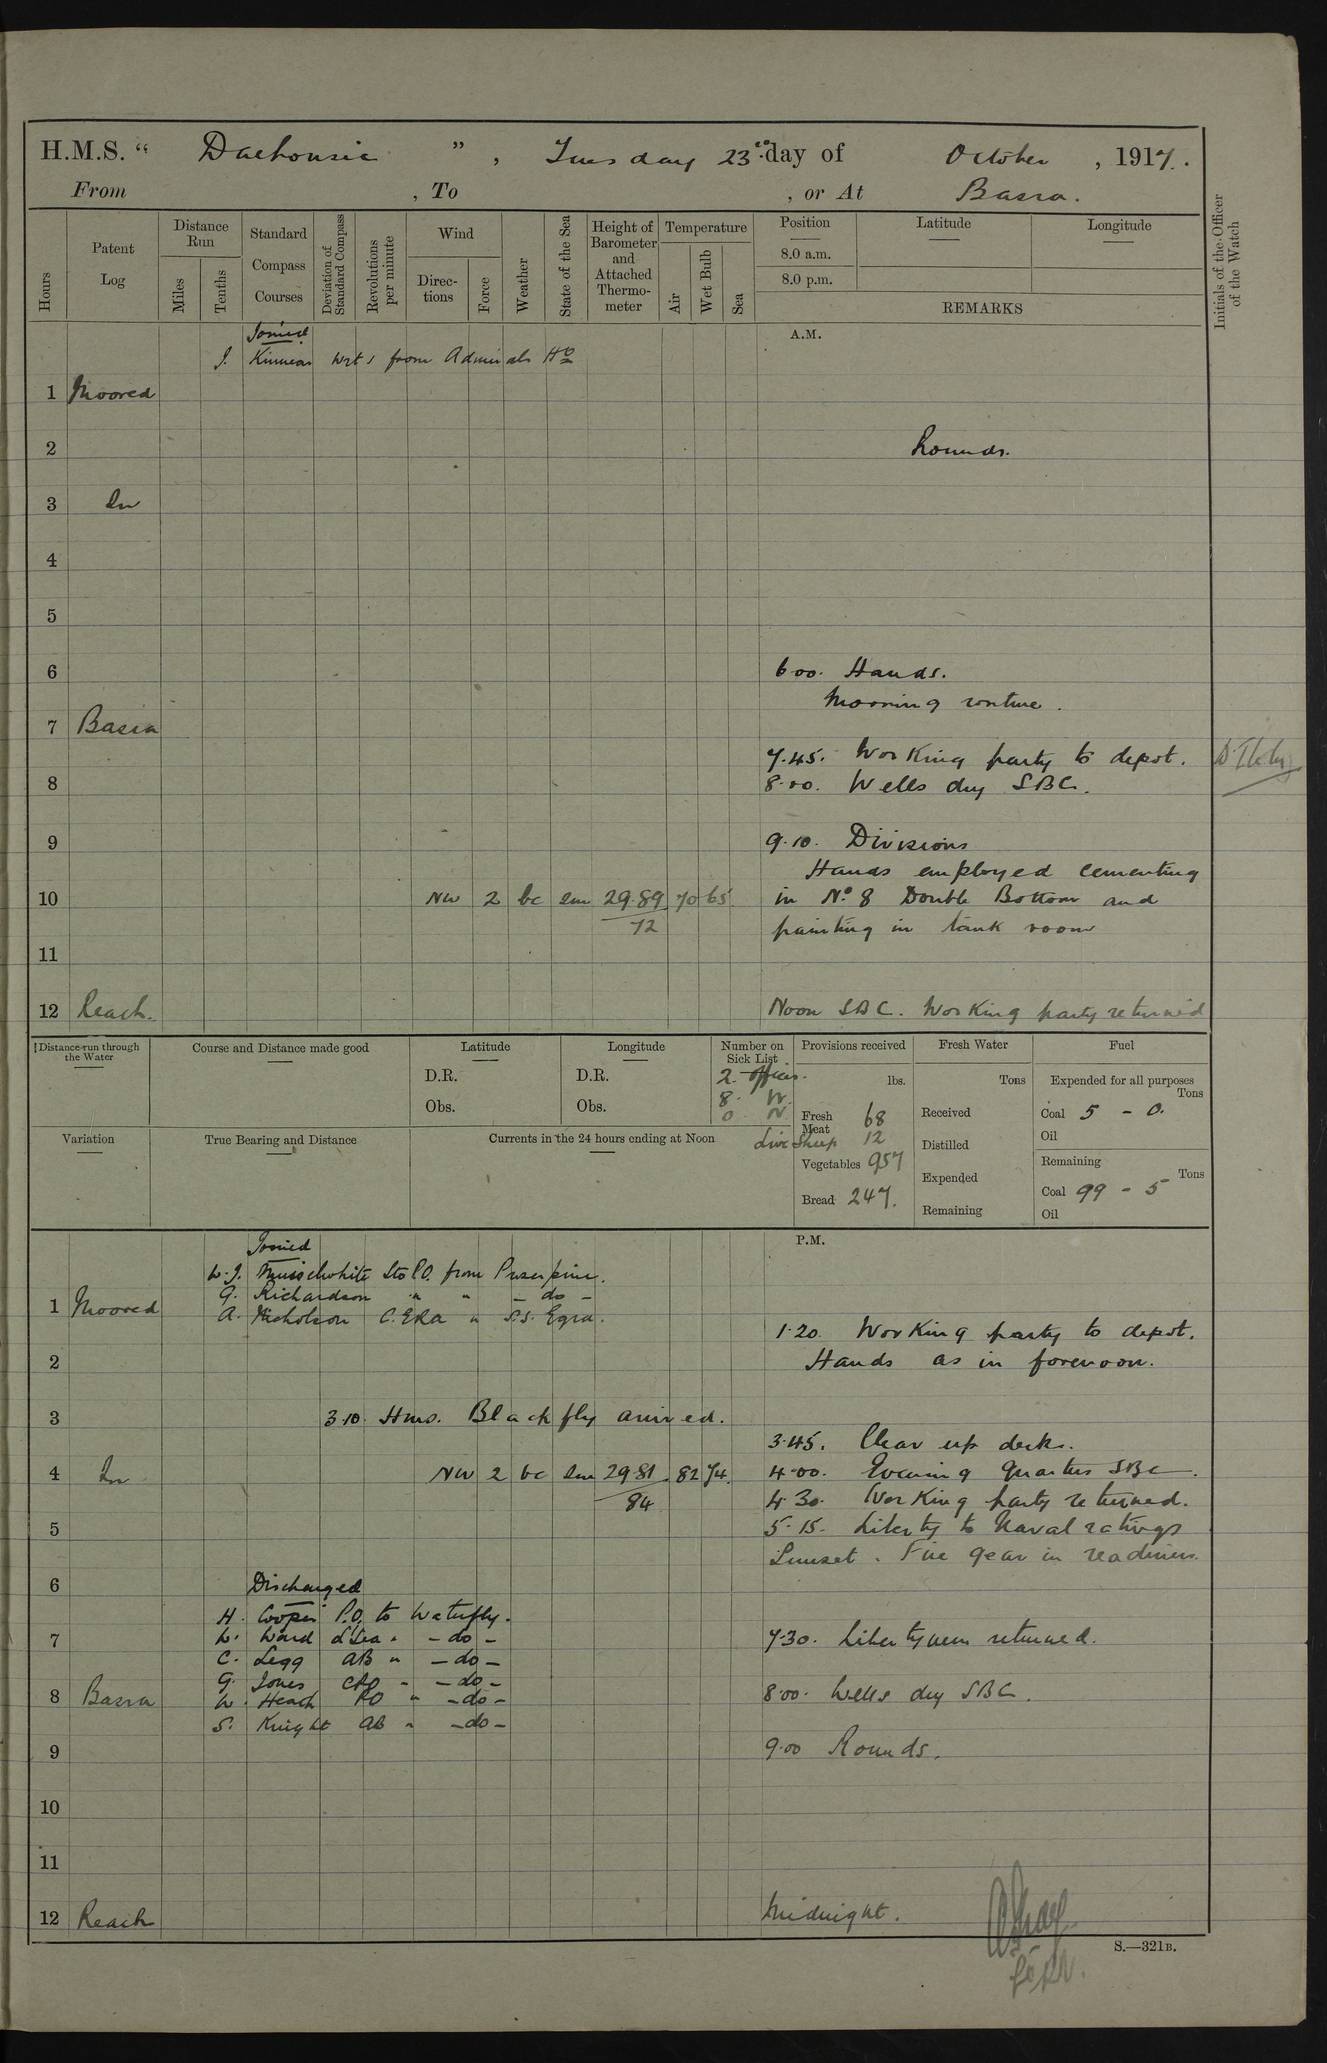 H.M.S. “ Dalhousie ” , Tuesday 23rd day of October , 1917.
From , To , or At Basra.
Hours
Patent Log
Distance Run
Miles
Tenths
Standard Compass Courses
Deviation of Standard Compass
Revolutions per minute
Wind
Direc-tions
Force
Weather
State of the Sea
Height of Barometer and Attached Thermo-meter
Temperature
Air
Wet Bulb
Sea
Position
8.0 a.m.
8.0 p.m.
Latitude
Longitude
REMARKS
Initials of the Officer of the Watch
Joined
A.M.
J. Kinnear Wrt r from Admirals Ho
1 Moored
2 Rounds.
3 In
4
5
6 6.00. Hands.
Morning routine.
7 Basra
7.45. Working party to depot.
8 8.00. Wells dry SBC.
9 9.10. Divisions
Hands employed cementing
10 NW 2 bc sm 29.89 70 65 in No. 8 Double Bottom and
72 painting in tank room
11
12 Reach. Noon SBC. Working party returned
Distance run through the Water
Course and Distance made good
Latitude
D.R.
Obs.
Longitude
D.R.
Obs.
Number on Sick List
2. Officers.
8. W.
0 N
Provisions received
lbs.
Fresh Meat 68
Live Sheep 12
Vegetables 957
Bread 247.
Fresh Water
Tons
Received
Distilled
Expended
Remaining
Fuel
Expended for all purposes
Tons
Coal 5 - 0.
Oil
Remaining
Tons
Coal 99 - 5
Oil
Variation
True Bearing and Distance
Currents in the 24 hours ending at Noon
Joined
P.M.
W.J. Musselwhite Sto P.O. from Proserpine.
G. Richardson " " - do -
1 Moored A. Nicholson C.ERA " S.S. Egra.
1.20. Working party to depot.
2 Hands as in forenoon.
3 3.10. Hms. Blackfly arrived.
3.45. Clear up decks.
4 In NW 2 bc sm 29.81 82 74. 4.00. Evening Quarters SBC.
84 4.30. Working party returned.
5 5.15. Liberty to Naval ratings
Sunset. Fire gear in readiness.
6 Discharged
H. Cooper P.O. to Waterfly.
7 W. Ward L Sea " - do - 7.30. Libertymen returned.
C. Legg AB " - do -
G. Jones CPO " - do -
8 Basra W. Heach PO " - do - 8.00. Wells dry SBC.
S. Knight AB " - do -
9 9.00 Rounds.
10
11
12 Reach Midnight.
S.—321B.